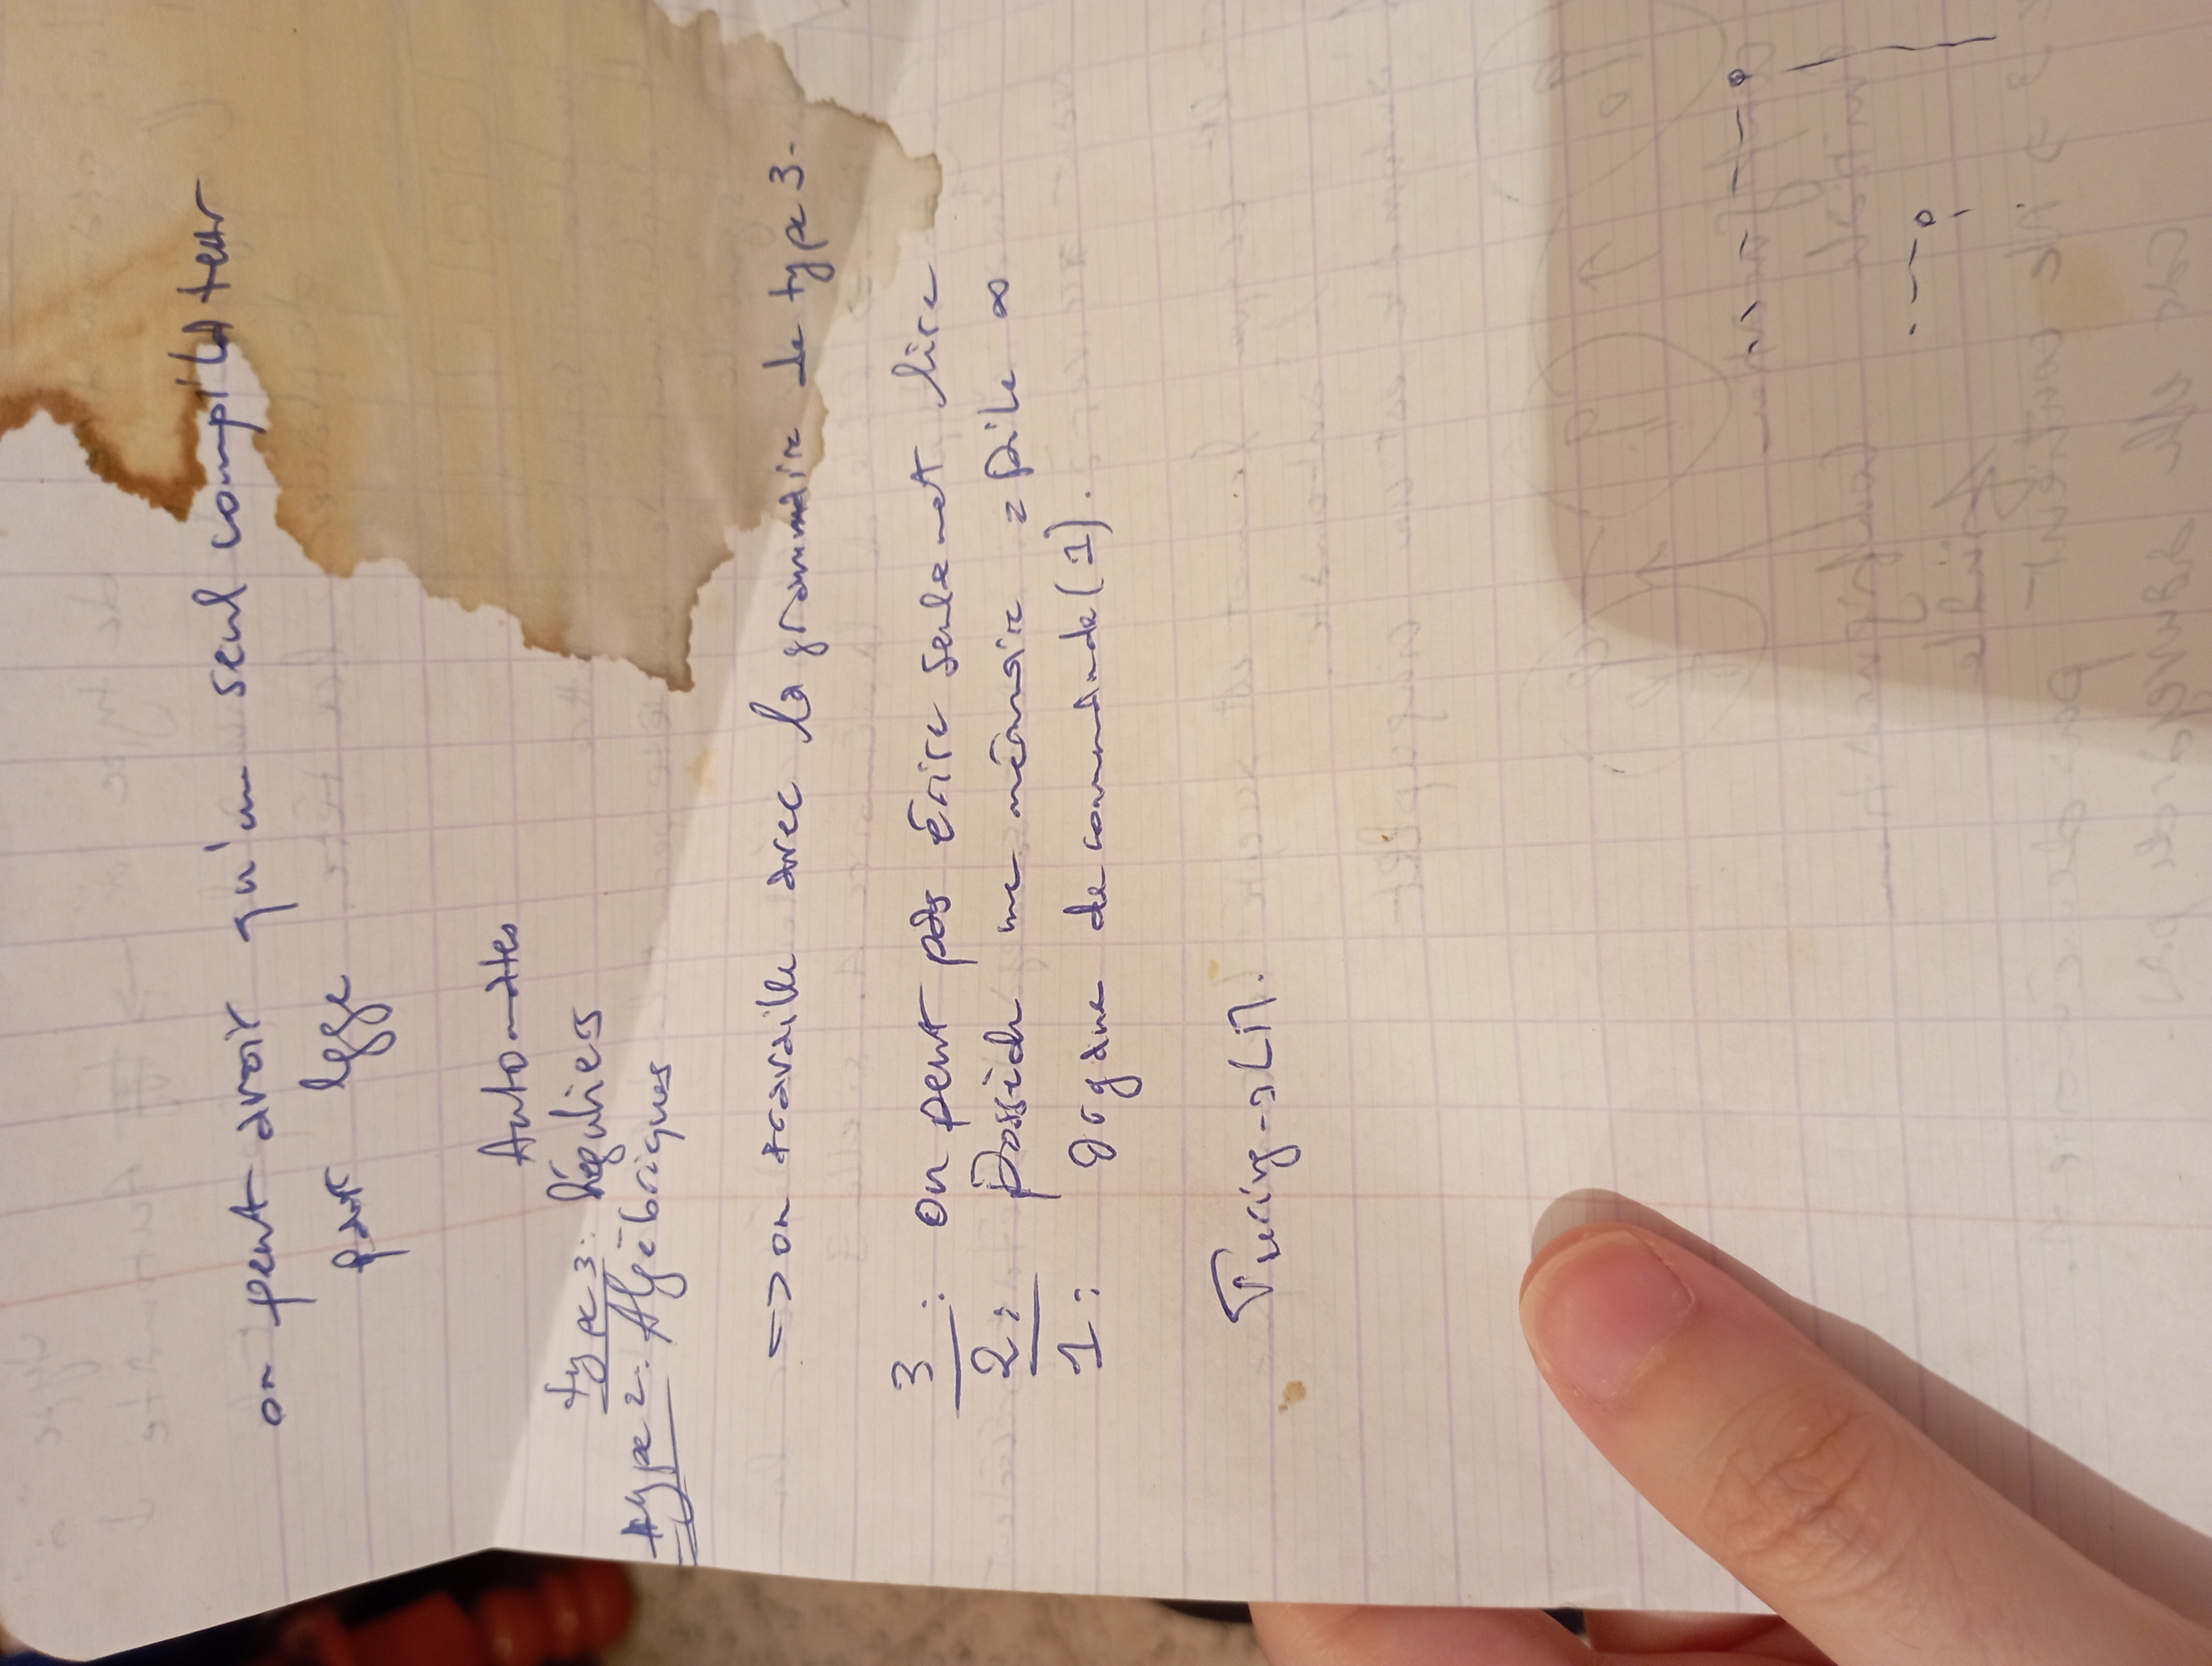 on peut avoir qu'un seul compilateur
par lgge
Automates
type 3: Réguliers
type 2: Algébriques
-> on travaille avec la grammaire de type 3.
3 : on peut pas érire seulemet lire
2 : Possède une mémoire = Pile ∞
1 : Organe de commande (1).
Turing ->